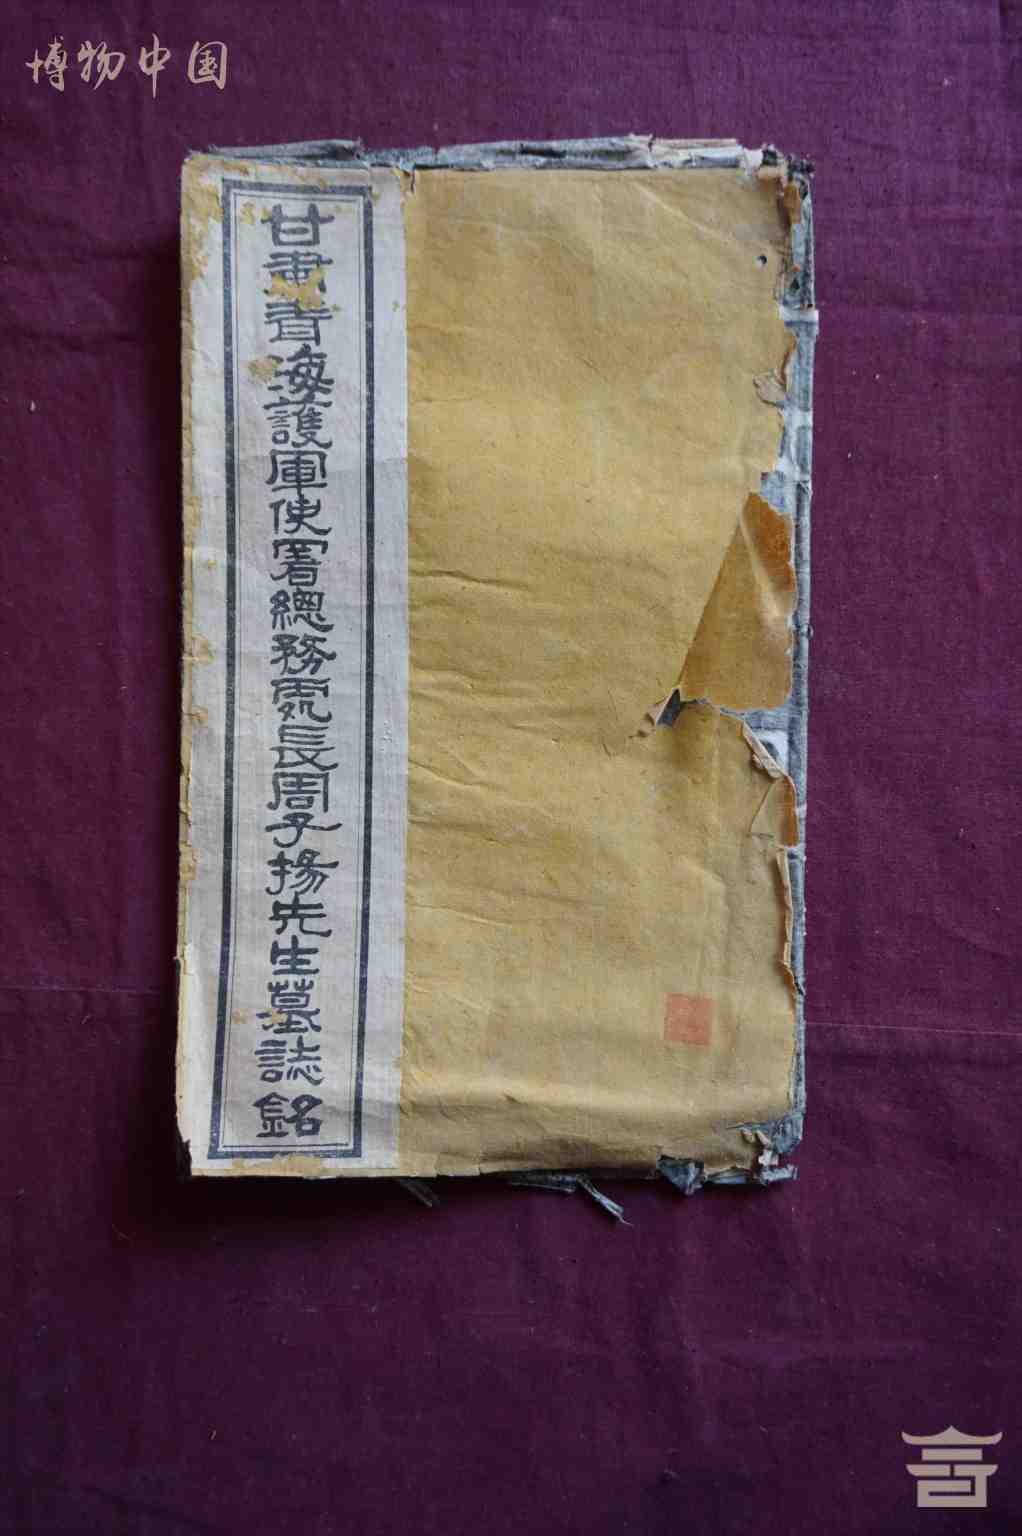 博物中国
甘肅青海護軍使署總務處長周子揚先生墓誌銘